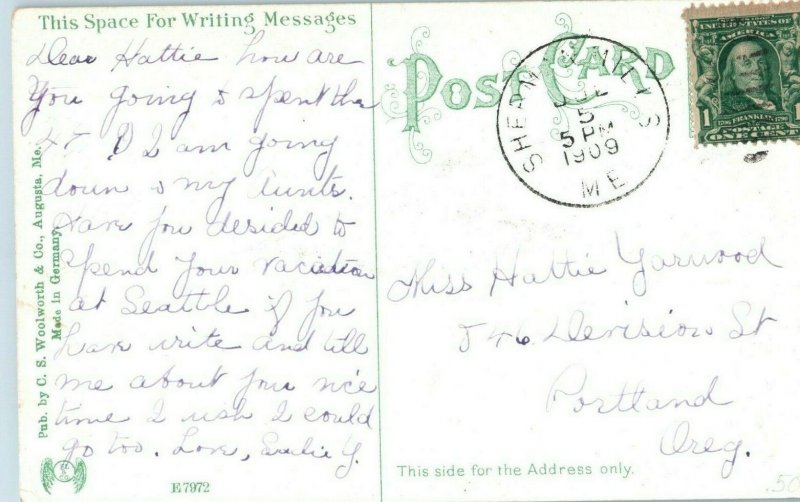 This Space For Writing Messages
Dear Hattie how are
you going to spent the
4th I am going
down to my Aunts.
Have you desided to
spend your vacation
at Seattle if you
have write and tell
me about you nice
time I wish I could
go too. Love, Y.
Pub. by C. S. Woolworth & Co., Augusta, Me.
Made in Germany
E 7972
POST CARD
SHERM MILLS
JUL
5
5 PM
1909
ME
UNITED STATES OF
AMERICA
1 FRANKLIN 1
POSTAGE
ONE CENT
Miss Hattie Yarwood
546 Devision St
Portland
Oreg.
This side for the Address only.
.50